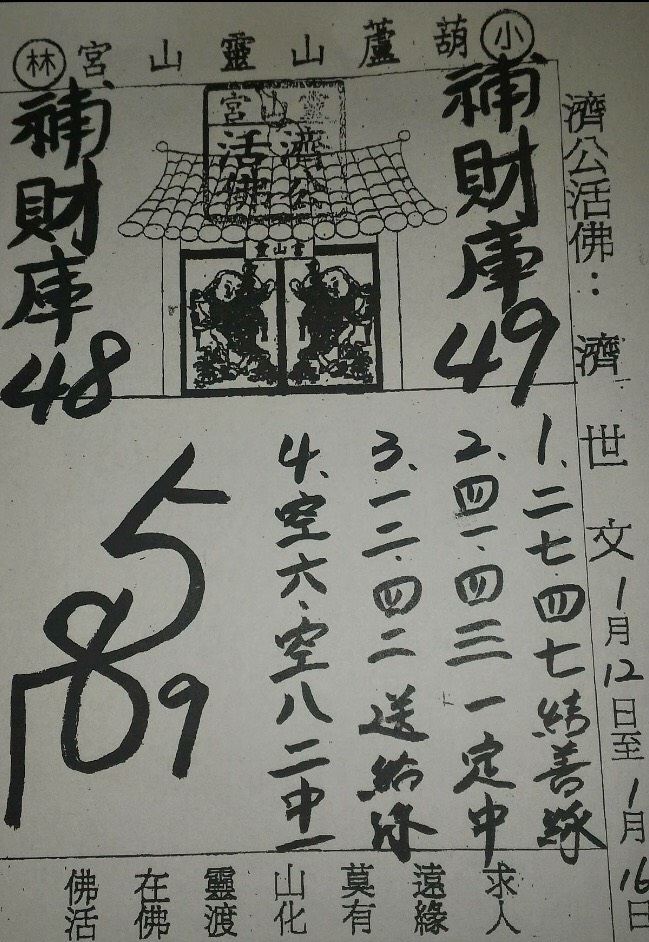 小葫蘆山靈山宮林
濟公活佛:濟世文1月12日至1月16日
補財庫49
靈山宮
濟公
活佛
靈山宮
補財庫48
1、二七.四七結善緣
2、四一.四三一定中
3、一二.四二送給緣
4、空六.空八二中一
5
789
佛在靈山莫遠求
活佛渡化有緣人